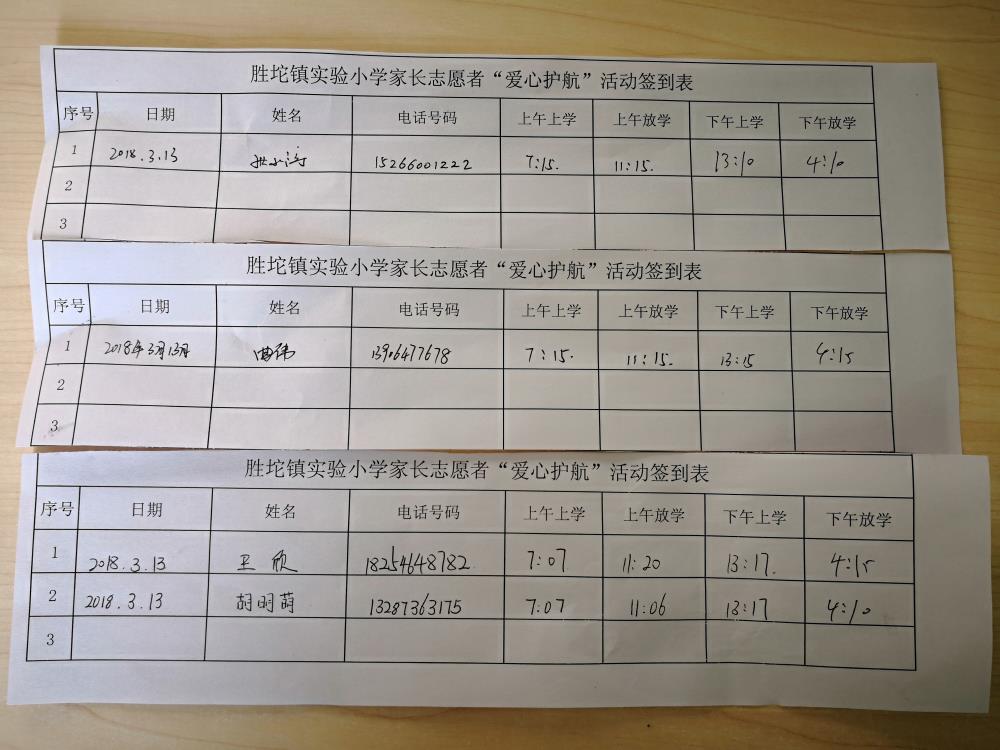 胜坨镇实验小学家长志愿者“爱心护航”活动签到表
序号 日期 姓名 电话号码 上午上学 上午放学 下午上学 下午放学
1 2018.3.13 15266001222 7:15. 11:15. 13:10 4:10
2
3
胜坨镇实验小学家长志愿者“爱心护航”活动签到表
序号 日期 姓名 电话号码 上午上学 上午放学 下午上学 下午放学
1 2018年3月13月 曲伟 13906477678 7:15. 11:15. 13:15 4:15
2
3
胜坨镇实验小学家长志愿者“爱心护航”活动签到表
序号 日期 姓名 电话号码 上午上学 上午放学 下午上学 下午放学
1 2018.3.13 王欣 18254648782 7:07 11:20 13:17. 4:15
2 2018.3.13 胡明萌 13287363175 7:07 11:06 13:17 4:10
3